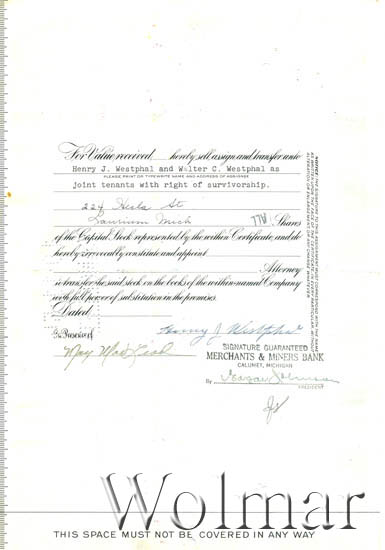 For Value received          hereby sell, assign and transfer unto
Henry J. Westphal and Walter C. Westphal as
PLEASE PRINT OR TYPEWRITE NAME AND ADDRESS OF ASSIGNEE
joint tenants with right of survivorship.
224 Hecla St.
Laurium Mich          Shares
of the Capital Stock represented by the within Certificate, and do
hereby irrevocably constitute and appoint
Attorney
to transfer the said stock on the books of the within-named Company
with full power of substitution in the premises.
Dated
In Presence of
Henry J Westphal
SIGNATURE GUARANTEED
MERCHANTS & MINERS BANK
CALUMET, MICHIGAN
By
PRESIDENT
Wolmar
THIS SPACE MUST NOT BE COVERED IN ANY WAY